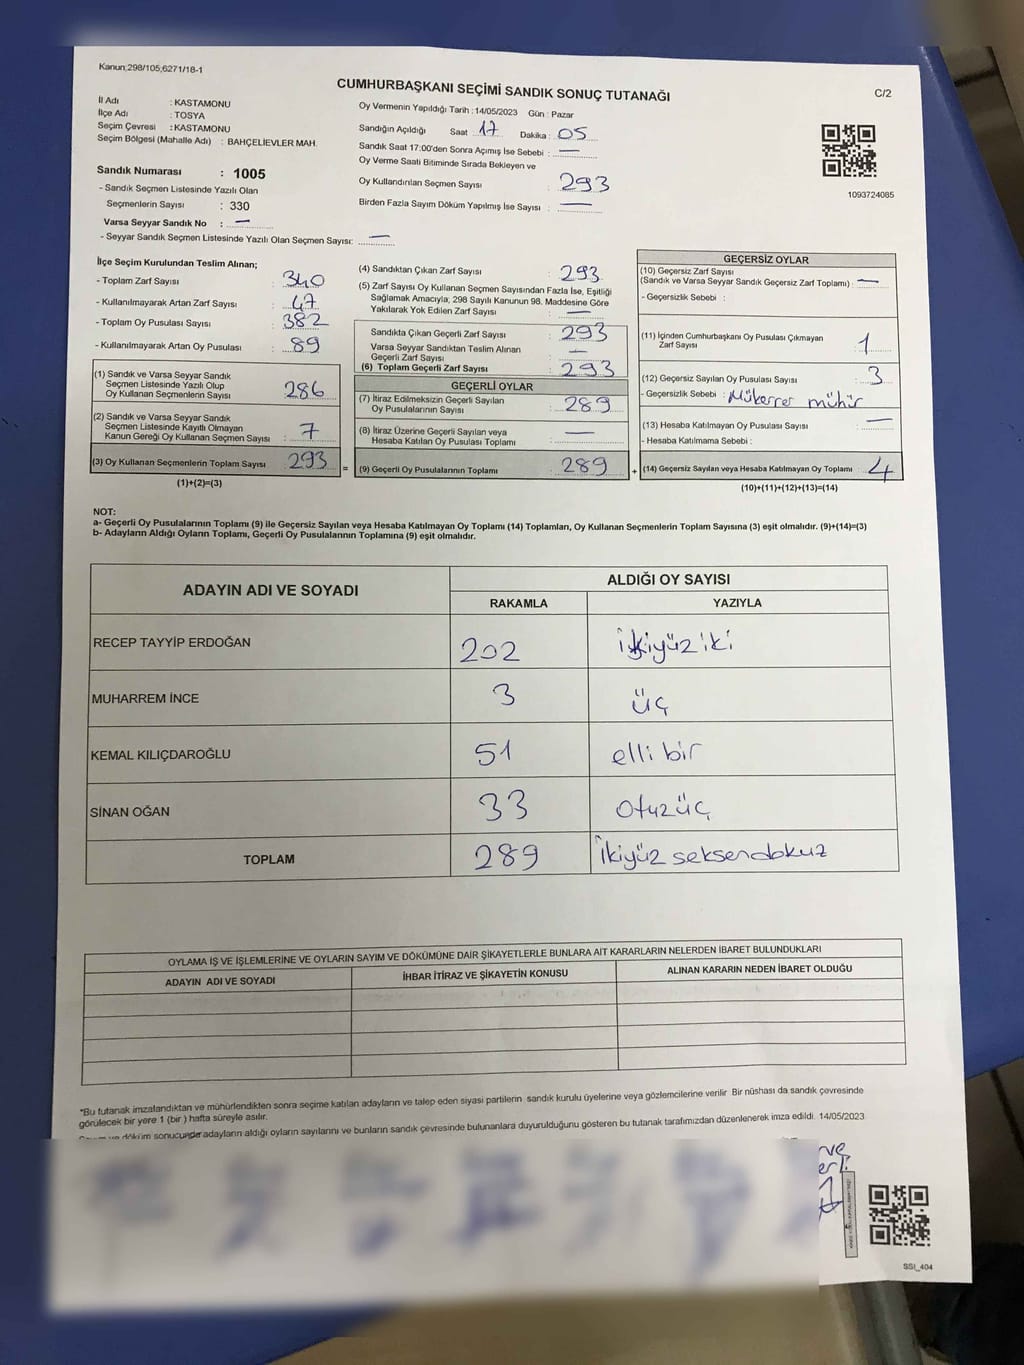 Kanun;298/105,6271/18-1
CUMHURBAŞKANI SEÇİMİ SANDIK SONUÇ TUTANAĞI
C/2
İl Adı : KASTAMONU
İlçe Adı : TOSYA
Seçim Çevresi : KASTAMONU
Seçim Bölgesi (Mahalle Adı) : BAHÇELİEVLER MAH.
Sandık Numarası : 1005
- Sandık Seçmen Listesinde Yazılı Olan
Seçmenlerin Sayısı : 330
Varsa Seyyar Sandık No : —
- Seyyar Sandık Seçmen Listesinde Yazılı Olan Seçmen Sayısı: —
Oy Vermenin Yapıldığı Tarih : 14/05/2023 Gün : Pazar
Sandığın Açıldığı Saat : 17 Dakika : 05
Sandık Saat 17:00'den Sonra Açımış İse Sebebi : —
Oy Verme Saati Bitiminde Sırada Bekleyen ve
Oy Kullandırılan Seçmen Sayısı : 293
Birden Fazla Sayım Döküm Yapılmış İse Sayısı : —
1093724085
İlçe Seçim Kurulundan Teslim Alınan;
- Toplam Zarf Sayısı : 340
- Kullanılmayarak Artan Zarf Sayısı : 47
- Toplam Oy Pusulası Sayısı : 382
- Kullanılmayarak Artan Oy Pusulası : 89
(1) Sandık ve Varsa Seyyar Sandık
Seçmen Listesinde Yazılı Olup
Oy Kullanan Seçmenlerin Sayısı : 286
(2) Sandık ve Varsa Seyyar Sandık
Seçmen Listesinde Kayıtlı Olmayan
Kanun Gereği Oy Kullanan Seçmen Sayısı : 7
(3) Oy Kullanan Seçmenlerin Toplam Sayısı : 293
(1)+(2)=(3)
(4) Sandıktan Çıkan Zarf Sayısı : 293
(5) Zarf Sayısı Oy Kullanan Seçmen Sayısından Fazla İse, Eşitliği
Sağlamak Amacıyla, 298 Sayılı Kanunun 98. Maddesine Göre
Yakılarak Yok Edilen Zarf Sayısı : —
Sandıkta Çıkan Geçerli Zarf Sayısı : 293
Varsa Seyyar Sandıktan Teslim Alınan
Geçerli Zarf Sayısı : —
(6) Toplam Geçerli Zarf Sayısı : 293
GEÇERLİ OYLAR
(7) İtiraz Edilmeksizin Geçerli Sayılan
Oy Pusulalarının Sayısı : 289
(8) İtiraz Üzerine Geçerli Sayılan veya
Hesaba Katılan Oy Pusulası Toplamı : —
= (9) Geçerli Oy Pusulalarının Toplamı : 289
GEÇERSİZ OYLAR
(10) Geçersiz Zarf Sayısı
(Sandık ve Varsa Seyyar Sandık Geçersiz Zarf Toplamı) : —
- Geçersizlik Sebebi :
(11) İçinden Cumhurbaşkanı Oy Pusulası Çıkmayan
Zarf Sayısı : 1
(12) Geçersiz Sayılan Oy Pusulası Sayısı : 3
- Geçersizlik Sebebi : Mükerrer mühür
(13) Hesaba Katılmayan Oy Pusulası Sayısı : —
- Hesaba Katılmama Sebebi :
+ (14) Geçersiz Sayılan veya Hesaba Katılmayan Oy Toplamı : 4
(10)+(11)+(12)+(13)=(14)
NOT:
a- Geçerli Oy Pusulalarının Toplamı (9) ile Geçersiz Sayılan veya Hesaba Katılmayan Oy Toplamı (14) Toplamları, Oy Kullanan Seçmenlerin Toplam Sayısına (3) eşit olmalıdır. (9)+(14)=(3)
b- Adayların Aldığı Oyların Toplamı, Geçerli Oy Pusulalarının Toplamına (9) eşit olmalıdır.
ADAYIN ADI VE SOYADI ALDIĞI OY SAYISI
RAKAMLA YAZIYLA
RECEP TAYYİP ERDOĞAN 202 ikiyüz iki
MUHARREM İNCE 3 üç
KEMAL KILIÇDAROĞLU 51 elli bir
SİNAN OĞAN 33 otuzüç
TOPLAM 289 İkiyüz seksendokuz
OYLAMA İŞ VE İŞLEMLERİNE VE OYLARIN SAYIM VE DÖKÜMÜNE DAİR ŞİKAYETLERLE BUNLARA AİT KARARLARIN NELERDEN İBARET BULUNDUKLARI
ADAYIN ADI VE SOYADI İHBAR İTİRAZ VE ŞİKAYETİN KONUSU ALINAN KARARIN NEDEN İBARET OLDUĞU
*Bu tutanak imzalandıktan ve mühürlendikten sonra seçime katılan adayların ve talep eden siyasi partilerin sandık kurulu üyelerine veya gözlemcilerine verilir Bir nüshası da sandık çevresinde
görülecek bir yere 1 (bir) hafta süreyle asılır.
ve döküm sonucunda adayların aldığı oyların sayılarını ve bunların sandık çevresinde bulunanlara duyurulduğunu gösteren bu tutanak tarafımızdan düzenlenerek imza edildi. 14/05/2023
SSI_404